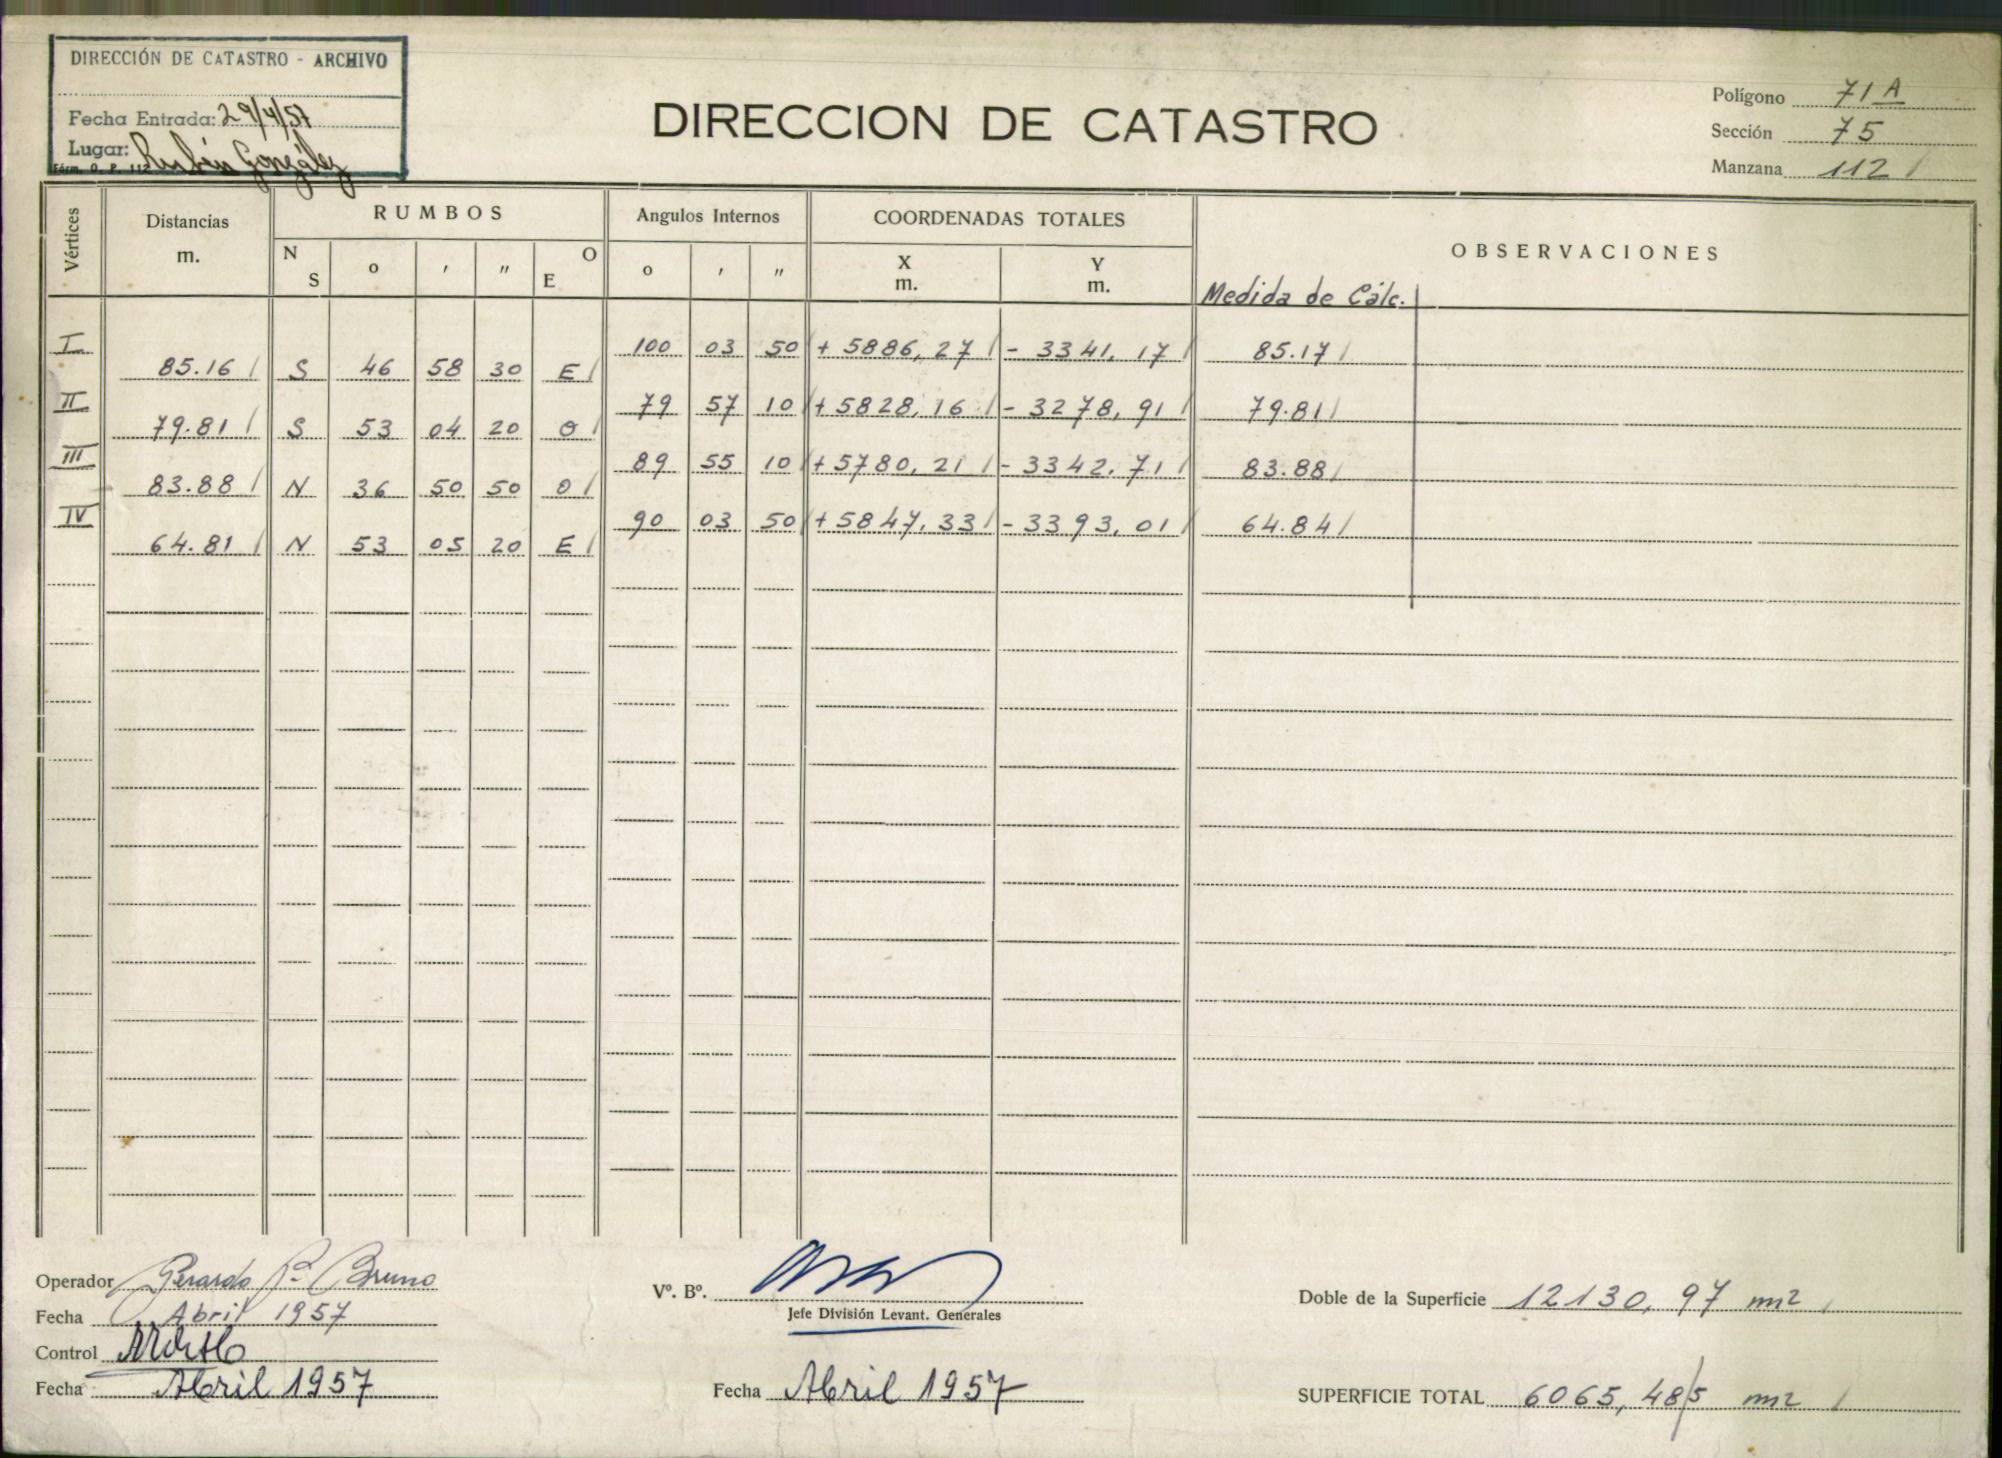 DIRECCIÓN DE CATASTRO - ARCHIVO
Fecha Entrada: 29/4/57
Lugar: Rubén González
Fórm. O. P. 112
DIRECCION DE CATASTRO
Polígono 71 A
Sección 75
Manzana 112
Vértices Distancias m. RUMBOS Angulos Internos COORDENADAS TOTALES OBSERVACIONES
N S o ' " E O o ' " X m. Y m. Medida de Cálc.
I 100 03 50 + 5886,27 - 3341,17 85.17
85.16 S 46 58 30 E
II 79 57 10 + 5828,16 - 3278,91 79.81
79.81 S 53 04 20 O
III 89 55 10 + 5780,21 - 3342,71 83.88
83.88 N 36 50 50 O
IV 90 03 50 + 5847,33 - 3393,01 64.84
64.81 N 53 05 20 E
Operador Gerardo P. Bruno
Fecha Abril 1957
Control
Fecha Abril 1957
Vº. Bº.
Jefe División Levant. Generales
Fecha Abril 1957
Doble de la Superficie 12130,97 m2
SUPERFICIE TOTAL 6065,48/5 m2